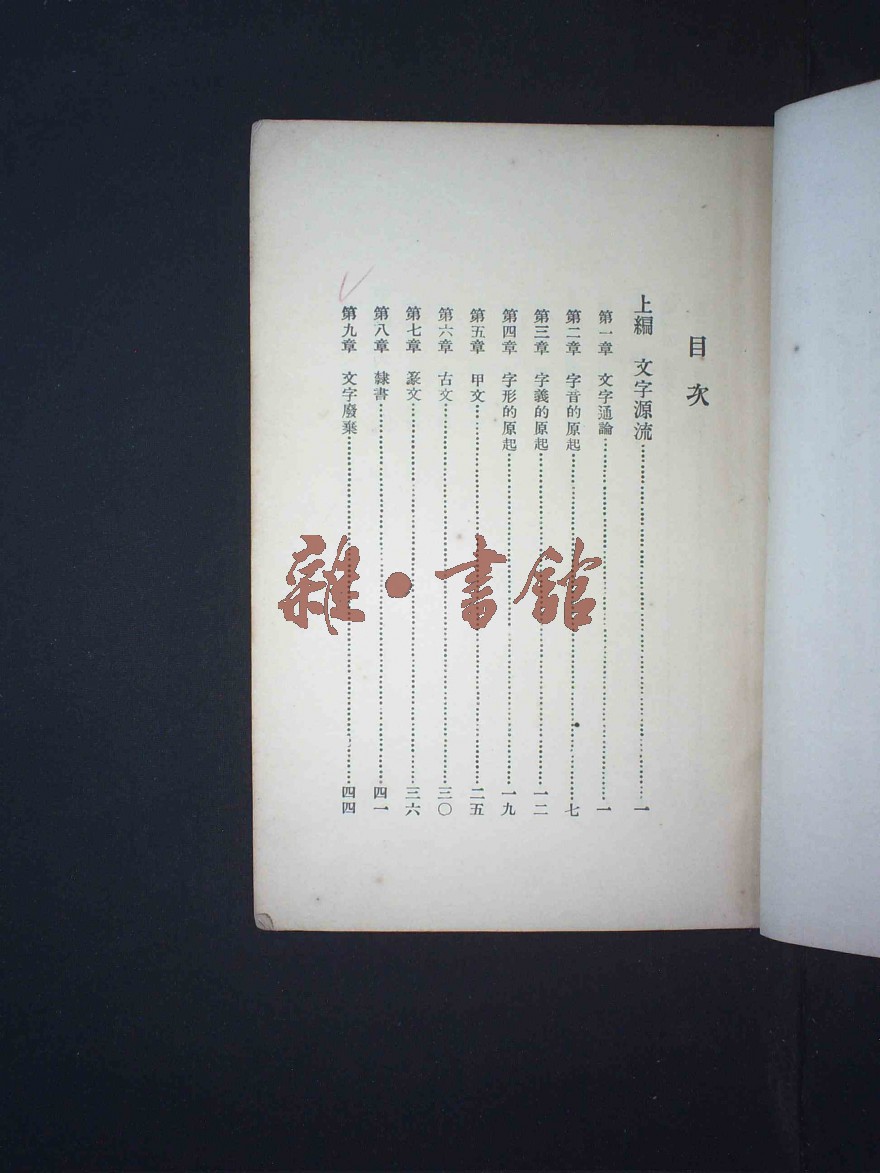 目次
上編 文字源流……一
第一章 文字通論……一
第二章 字音的原起……七
第三章 字義的原起……一二
第四章 字形的原起……一九
第五章 甲文……二五
第六章 古文……三〇
第七章 篆文……三六
第八章 隸書……四一
第九章 文字廢棄……四四
雜·書館